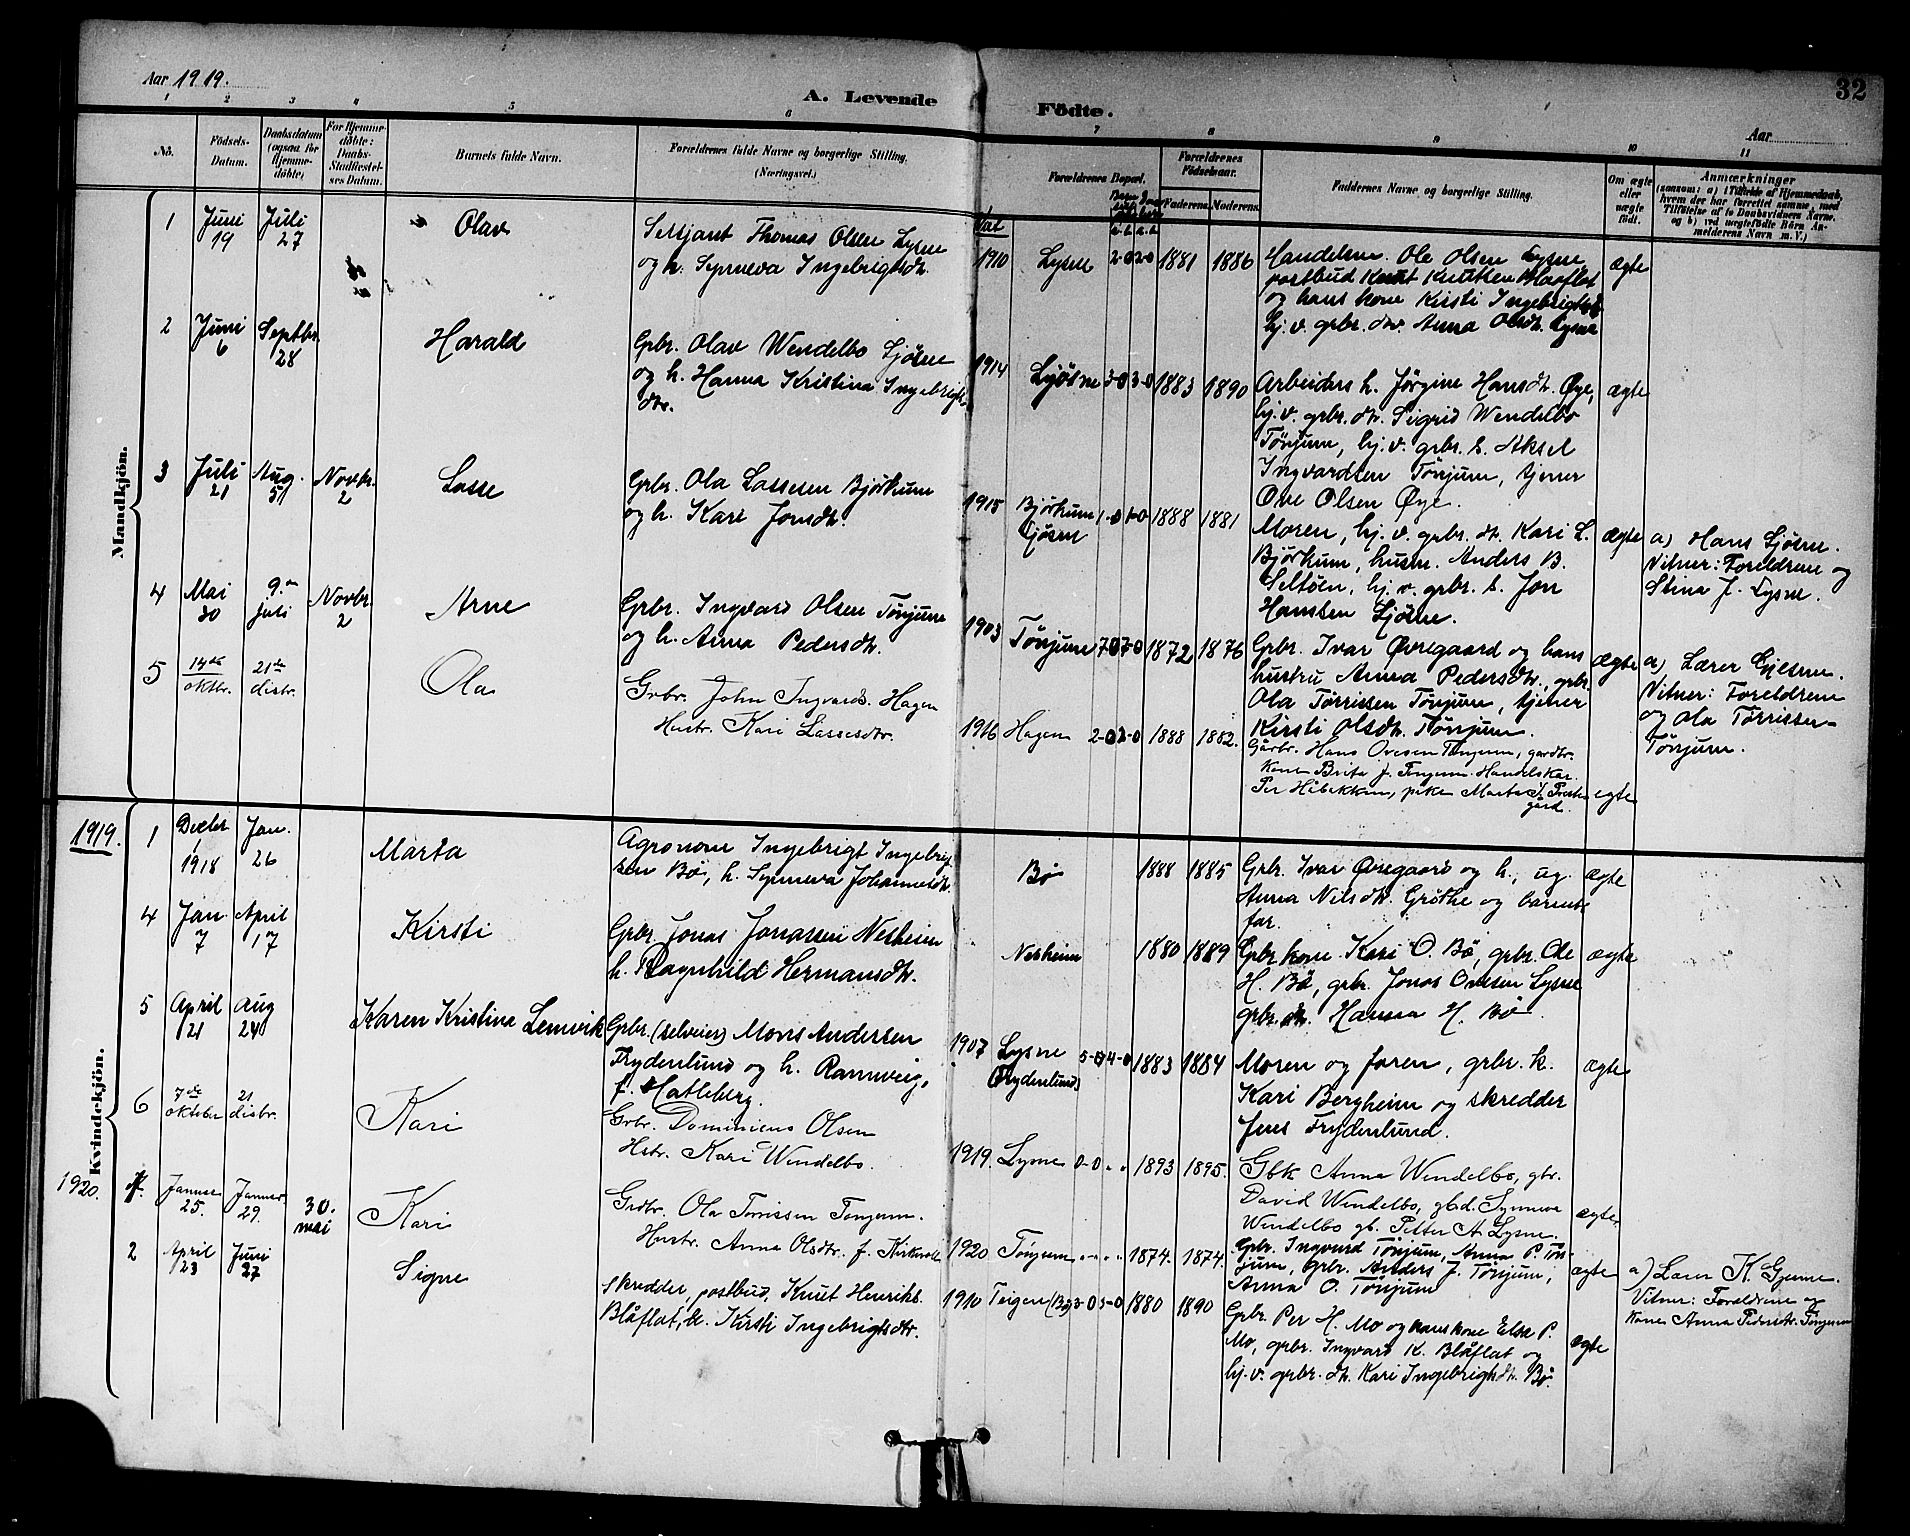 Aar 1919.
A. Levende Födte.
32
Aar
1 2 3 4 5 6 7 8 9 10 11
No.
Födsels-Datum.
Daabsdatum (ogsaa for Hjemme-döbte)
For Hjemme-döbte: Daabs-Stadfæstel-ses Datum.
Barnets fulde Navn.
Forældrenes fulde Navne og borgerlige Stilling. (Næringsvei.)
Forældrenes Bopæl.
Forældrenes Födselsaar.
Faderens. Moderens.
Faddernes Navne og borgerlige Stilling.
Om ægte eller uægte födt.
Anmærkninger
(saasom: a) i Tilfælde af Hjemmedaab,
hvem der har forrettet samme, med
Tilföielse af to Daabsvidners Navne.
og b) ved uægtefödte Börn An-
melderens Navn m. V.)
Mandkjön.
1 Juni 19 Juli 27 Olav
Sersjant Thomas Olsen Lysne
og h. Synneva Ingebrigtsdtr.
1910 Lysne 2-0 2-0 1881 1886
Handelsm. Ole Olsen Lysne
postbud Knut Knutsen Blaaflat
og hans kone Kirsti Ingebrigtsd
hj. v. grbr. dtr. Anna Olsdtr. Lysne
ægte
2 Juni 6 Septbr. 28 Harald
Grbr. Olav Wendelbo Ljösne
og h. Hanna Kristina Ingebrigts
dtr.
1914 Ljøsne 3-0 3-0 1883 1890
Arbeiders h. Jørgine Hansdtr. Øye,
hj. v. grbr. dtr. Sigrid Wendelbo
Tönjum, hj. v. grbr. s. Aksel
Ingvardsen Tönjum, tjener
Ove Olsen Øye.
ægte
3 Juli 21 Aug. 5 Novbr. 2 Lasse
Grbr. Ola Lassesen Bjørkum
og h. Kari Jonsdtr.
1915 Bjørkum Ljösne 1-0 1-0 1888 1881
Moren, hj. v. grbr. dtr. Kari L.
Bjørkum, husm. Anders B.
Seltöen, hj. v. grbr. s. Jon
Hanssen Ljösne.
ægte
a) Hans Ljösne.
Vitner: Foreldrene og
Stina J. Lysne.
4 Mai 30 9.de Juli Novbr. 2 Arne
Grbr. Ingvard Olsen Tönjum
og h. Anna Pedersdtr.
1903 Tönjum 7-0 7-0 1872 1876
Grbr. Ivar Øvregaard og hans
hustru Anna Pedersdtr., grbr.
Ola Tørrissen Tönjum, tjener
Kirsti Olsdtr. Tönjum.
ægte
a) Lærer Gjesme.
Vitner: Foreldrene
og Ola Tørrissen
Tönjum.
5 14de oktbr. 21de disbr. Ola
Grbr. John Ingvards. Hagen
Hustr. Kari Lassesdtr.
1916 Hagen 2-0 2-0 1888 1882.
Gårbr. Hans Ovesen Tönjum, gardbr.
Kone Brita J. Tonjum. Handelskar.
Per Hibakkun, pike Marta I. Prest
gård.
egte
Kvindekjön.
1919.
1 Decbr 1 1918 Jan. 26 Marta
Agronom Ingebrigt Ingebrigt
sen Bö, h. Synneva Johannesdtr.
Bö 1888 1885
Grbr. Ivar Øvregaard og h., ug.
Anna Nilsdtr. Gröthe og barnets
far.
ægte
4 Jan. 7 April 17 Kirsti
Grbr. Jonas Jonassen Nesheim
h. Ragnhild Hermansdtr.
Nesheim 1880 1889
Grbr kone Kari O. Bö, grbr. Ole
H. Bö, grbr. Jonas Ovesen Lysne
grbr. dtr. Hanna H. Bö.
ægte
5 April 21 Aug 24 Karen Kristina Lemvik
Grbr. (selveier) Mons Andersen
Frydenlund og h. Rannveig,
f. Hatleberg.
1907 Lysne (Frydenlund) 5-0 4-0 1883 1884
Moren og faren, grbr. k.
Kari Bergheim og skredder
Jens Frydenlund.
ægte
6 7de oktober 21 disbr. Kari
Grbr. Dominicus Olsen
Hstr. Kari Wendelbo.
1919. Lysne 0-0 1893 1895.
Gbk Anna Wendelbo, gbr.
David Wendelbo, gbd. Synneva
Wendelbo gb. Petter A. Lysne.
ægte
1920. 1. Januar 25. Januar 29. 30. mai Kari
Grdbr. Ola Tørrissen Tønjum.
Hustr. Anna Olsdtr. f. Kirkvoll
1920 Tönjum 1874. 1874.
Grbr. Ingvard Tönjum, Anna P. Tön-
jum, grbr. Anders J. Tönjum,
Anna O. Tönjum
ægte
a) Lærer K. Gjesme.
Vitner: Foreldrene og
Kone Anna Pedersdtr. Tönjum
2 April 23 Juni 27 Signe
Skredder, postbud, Knut Henriks.
Blåflat, h. Kirsti Ingebrigtsdtr.
1910 Teigen (Bö) 3-0 3-0 1880 1890
Grbr. Per H. Mo og hans kone Elsa P.
Mo, grbr. Ingvard K. Blåflat og
hj. v. grbr. dtr. Kari Ingebrigtsdtr. Bö.
ægte